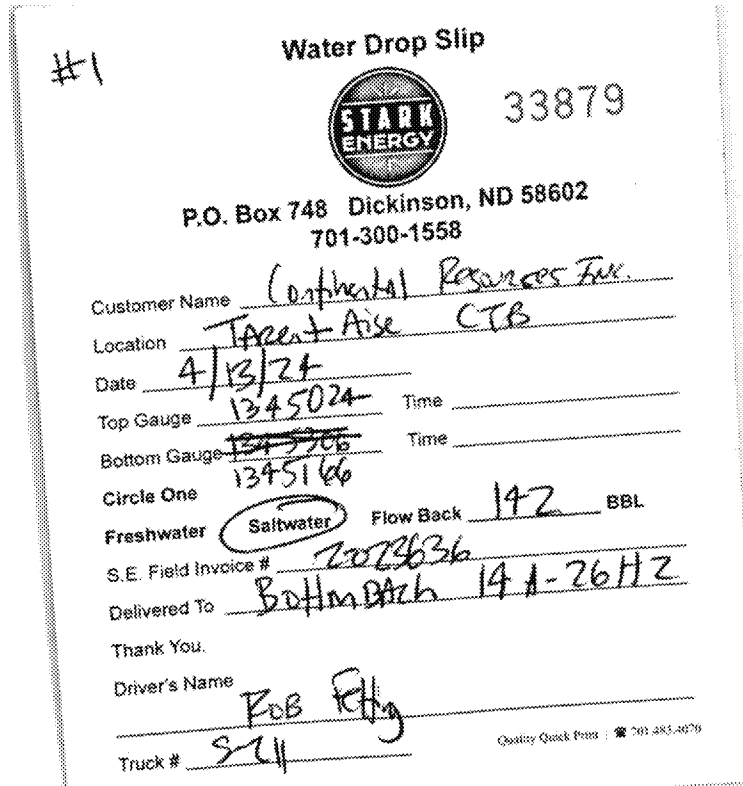 #1
Water Drop Slip
STARK
ENERGY
33879
P.O. Box 748 Dickinson, ND 58602
701-300-1558
Customer Name Continental Resources Inc.
Location CTB
Date 4/13/24
Top Gauge 1345024 Time
Bottom Gauge Time
1345166
Circle One
Freshwater Saltwater Flow Back 142 BBL
S.E. Field Invoice # 2023636
Delivered To 14A-26H2
Thank You.
Driver's Name
Rob
Truck # S-211
Quality Quick Print ☎ 701.483.4076